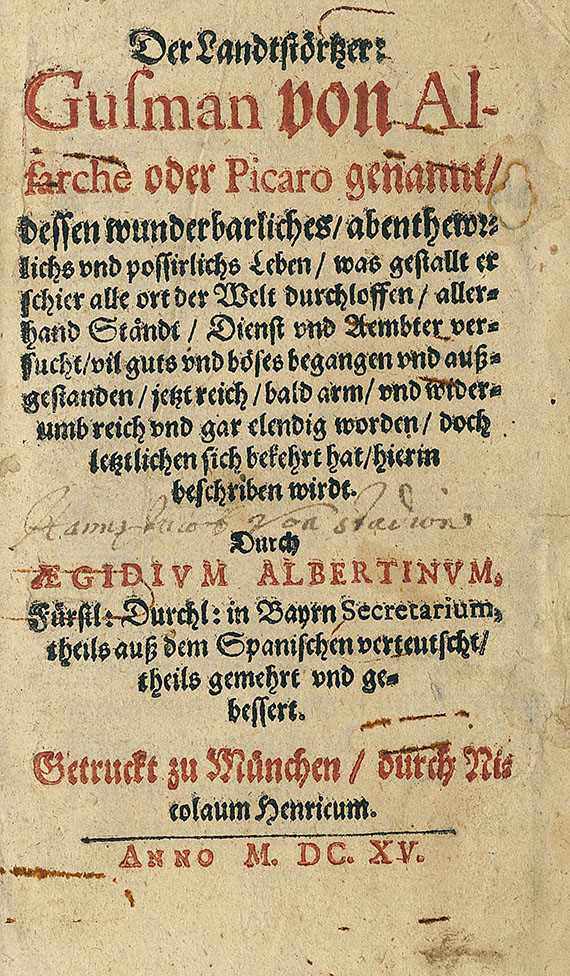 Der Landtstörtzer:
Gusman von Al-
farche oder Picaro genannt/
dessen wunderbarliches/ abenthewr-
lichs vnd possirlichs Leben/ was gestallt er
schier alle ort der Welt durchloffen/ aller-
hand Ständt/ Dienst vnd Aembter ver-
sucht/ vil guts vnd böses begangen vnd auß-
gestanden/ jetzt reich/ bald arm/ vnd wider-
umb reich vnd gar elendig worden/ doch
letztlichen sich bekehrt hat/ hierin
beschriben wirdt.
von
Durch
ÆGIDIVM ALBERTINVM,
Fürstl: Durchl: in Bayrn Secretarium,
theils auß dem Spanischen verteutscht/
theils gemehrt vnd ge-
bessert.
Getruckt zu München/ durch Ni-
colaum Henricum.
ANNO M. DC. XV.